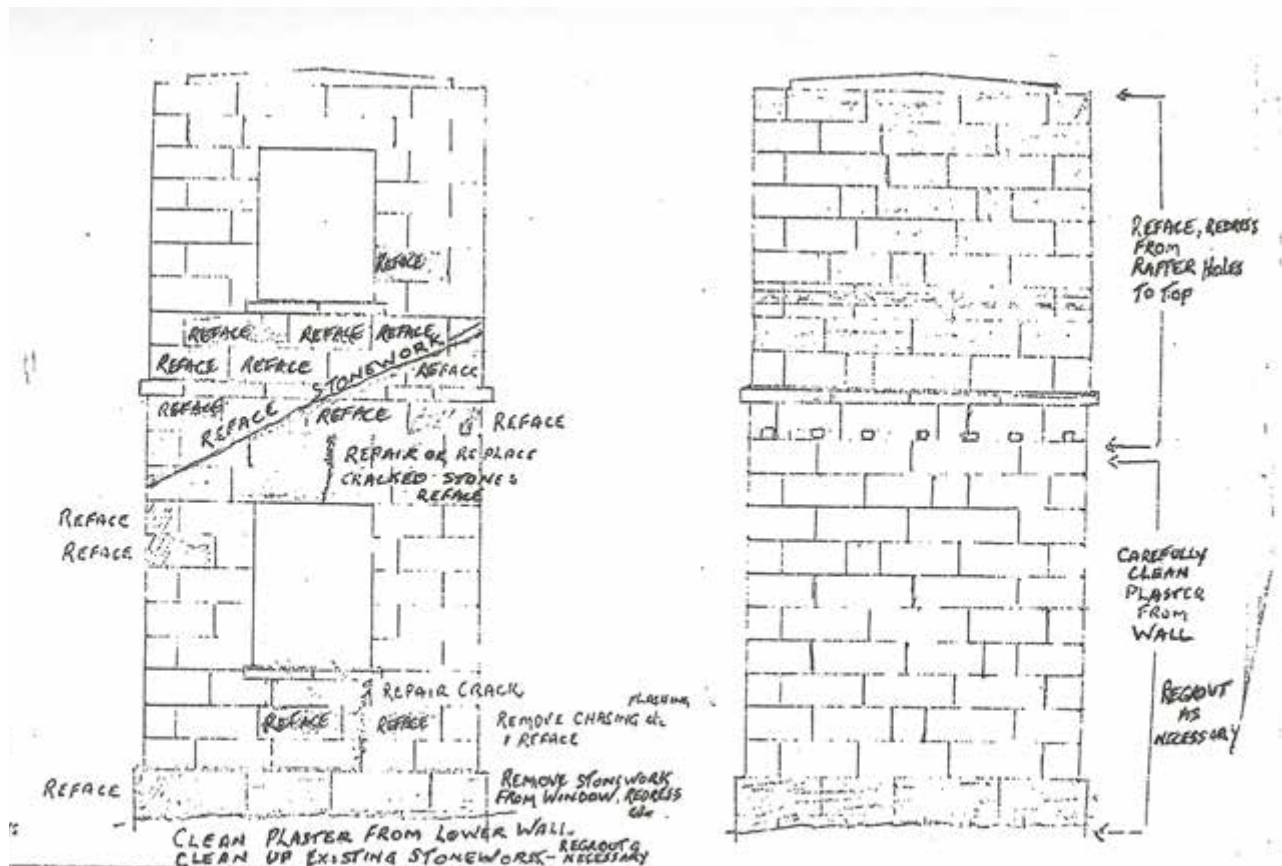 REFACE
REFACE
REFACE
REFACE
REFACE
REFACE
REFACE
REFACE STONEWORK
REFACE
REFACE
REFACE
REPAIR OR REPLACE
CRACKED STONES
REFACE
REFACE
REFACE
REPAIR CRACK
REFACE
REFACE
FLASHING
REMOVE CHASING &c
& REFACE
REFACE
REMOVE STONEWORK
FROM WINDOW, REDRESS
&c
CLEAN PLASTER FROM LOWER WALL.
CLEAN UP EXISTING STONEWORK - REGROUT
NECESSARY
REFACE, REDRESS
FROM
RAFTER HOLES
TO TOP
CAREFULLY
CLEAN
PLASTER
FROM
WALL
REGROUT
AS
NECESSARY